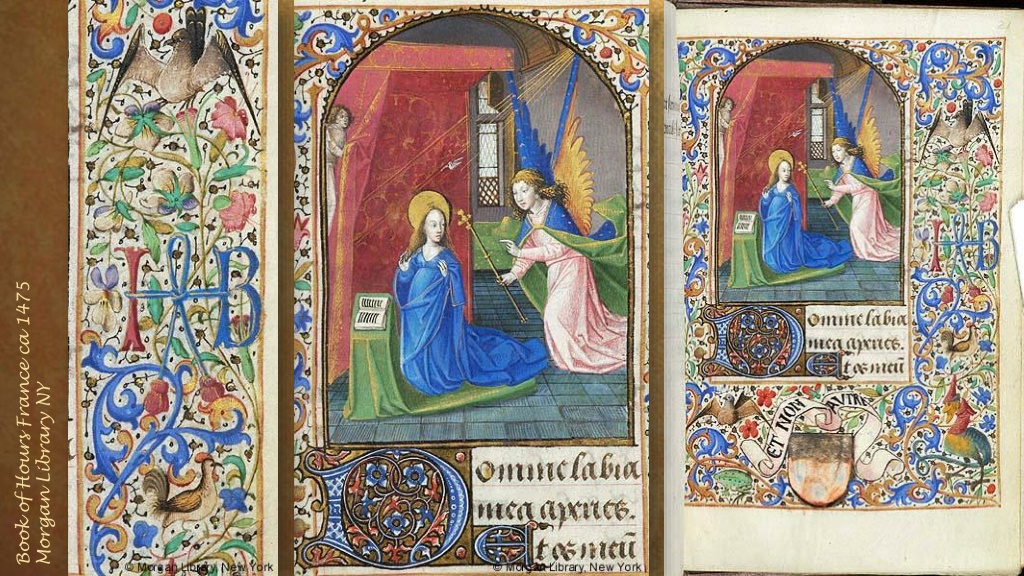 Book of Hours France ca 1475
Morgan Library NY
I B
© Morgan Library, New York
Domine labia
mea aperies.
Et os meū
© Morgan Library, New York
I B
Domine labia
mea aperies.
Et os meū
ET NON AVTRE